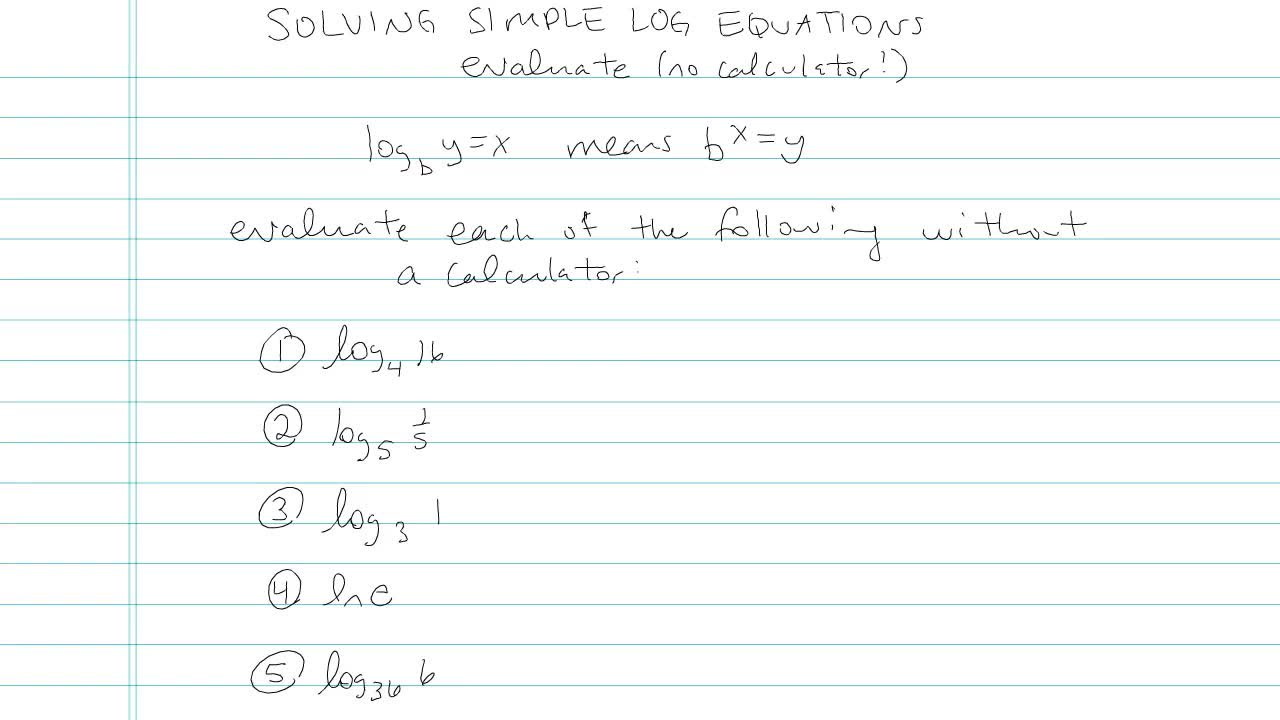 SOLVING SIMPLE LOG EQUATIONS
evaluate (no calculator!)
log_b y = x means b^x = y
evaluate each of the following without
a calculator:
① log_4 16
② log_5 1/5
③ log_3 1
④ ln e
⑤ log_36 6